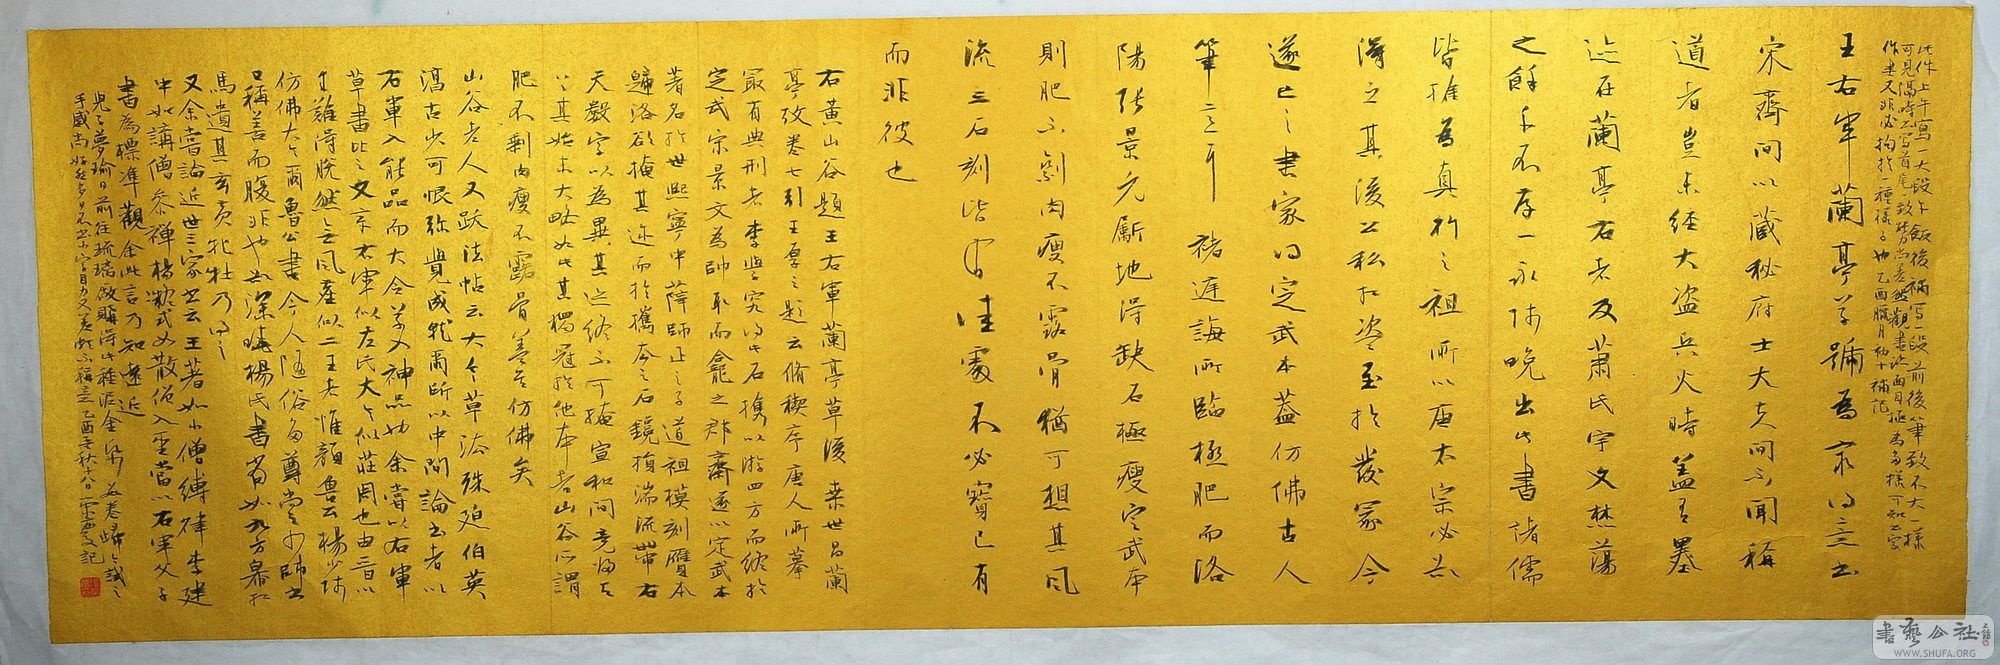 此件上午寫一大段午飯後補寫一段前後筆致不大一樣
可見隔時而寫首尾致勢尚差無觀書次面目極為多樣可知公家
作書又非必拘於一種樣子也乙酉臘月初十補記
王右軍蘭亭草號為最得意書
宋齊間以藏秘府士大夫間不聞稱
道者豈未經大盜兵火時蓋有墨
迹在蘭亭右者及蕭氏宇文焚蕩
之餘千不存一永師晚出此書諸儒
皆推為真行之祖所以唐太宗必欲
得之其後公私相盜至於發冢今
遂亡之書家得定武本蓋仿佛古人
筆意耳褚庭誨所臨極肥而洛
陽張景元斸地得缺石極瘦定武本
則肥不剩肉瘦不露骨猶可想其風
流三石刻皆有佳處不必寶已有
而非彼也
右黃山谷題王右軍蘭亭草後桑世昌蘭
亭攷卷七引王厚之題云脩禊序唐人所摹
最有典刑者李學究得此石攜以游四方而終於
定武宋景文為帥取而龕之郡齋遂以定武本
著名於世熙寧中薛師正之子道祖模刻贗本
歸洛欲掩其迹而於攜去之石鐫損湍流帶右
天數字以為異其迹終不可掩宣和間竟歸天
上其始末大略如此其獨冠於他本者山谷所謂
肥不剩肉瘦不露骨差為仿佛矣
山谷老人又跋法帖云大令草法殊迫伯英
淳古少可恨彌覺成就爾所以中間論書者以
右軍入能品而大令草入神品也余嘗以右軍
草書比之文章右軍似左氏大令似莊周也由晉以
來難得脫然之風塵似二王者惟顏魯公楊少師
仿佛大令爾魯公書今人隨俗多尊尚之少師書
口稱善而腹非也欲深曉楊氏書當如九方皋相
馬遺其玄黃牝牡乃得之
又余嘗論近世三家書云王著如小僧縛律李建
中如講僧參禪楊凝式如散僧入聖當以右軍父子
書為標準觀余此言乃知遠近
兒子夢瑜日前往琉璃廠購得此種泥金
手戚尚 乙酉年秋十八日 記
書藝公社
WWW.SHUFA.ORG